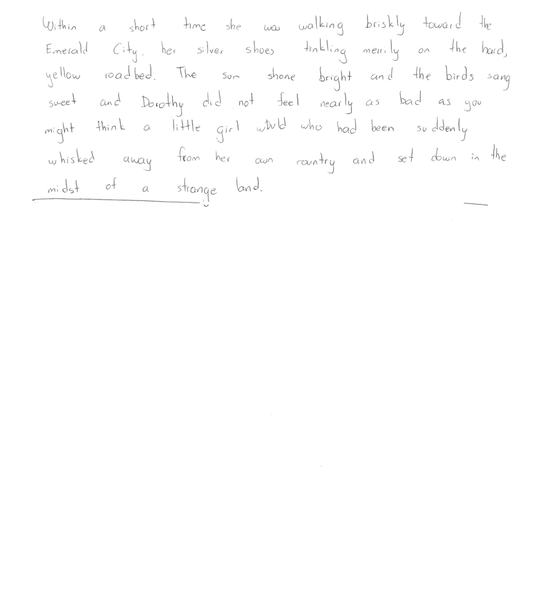 Within a short time she was walking briskly toward the
Emerald City, her silver shoes tinkling merrily on the hard,
yellow roadbed. The sun shone bright and the birds sang
sweet and Dorothy did not feel nearly as bad as you
might think a little girl who had been suddenly
whisked away from her own country and set down in the
midst of a strange land.